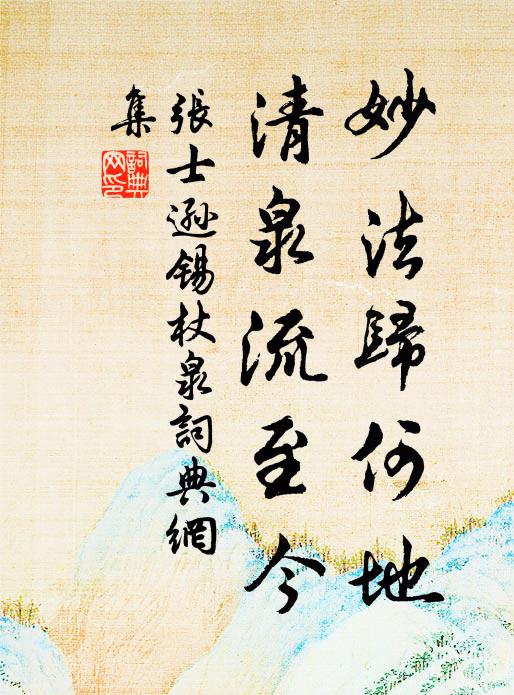 妙法歸何地
清泉流至今
張士遜錫杖泉詞典網
集
詞典
网印